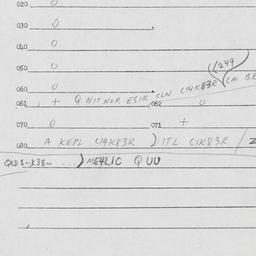 020 0
030 0
040 0
050 0
(1249
060 0 CLN C14K83R (CM BR
061 + Q NIT NOR ESIK 062 0
070 0 071 +
080 A KEPL C14K83R ) ITL C1K83R / 2
QKD 8...K38... ) ME4LIC Q UU